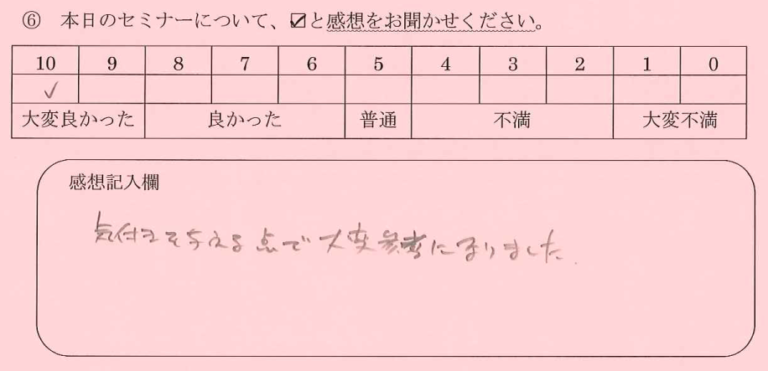 ⑥ 本日のセミナーについて、☑と感想をお聞かせください。
10 9 8 7 6 5 4 3 2 1 0
✓
大変良かった 良かった 普通 不満 大変不満
感想記入欄
気付きを与える点で大変参考になりました.